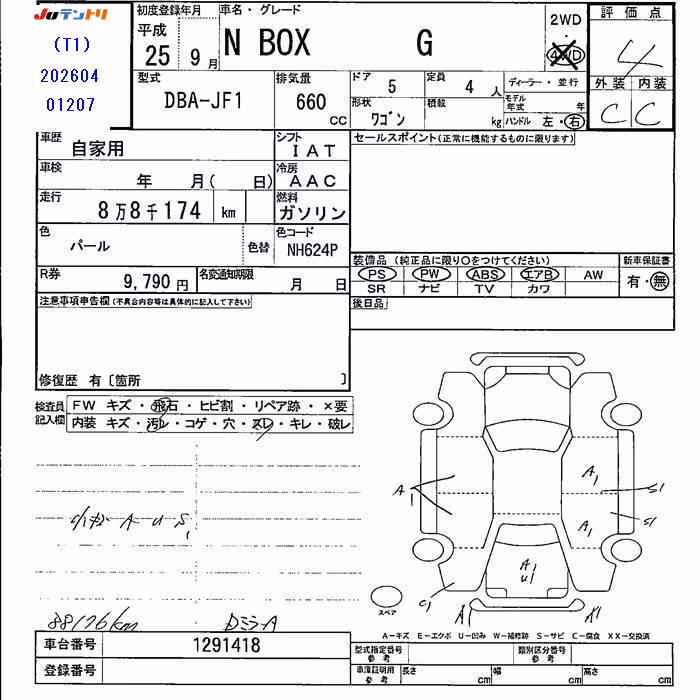 JUテントリ
(T1)
202604
01207
初度登録年月
平成
25 9月
車名・グレード
N BOX G
2WD
4WD
評価点
4
外装 内装
C C
型式
DBA-JF1
排気量
660
CC
ドア 5
定員 4 人
ディーラー・並行
形状 ワゴン
積載 kg
モデル年式 年
ハンドル 左・右
車歴 自家用
シフト IAT
車検 年 月( 日)
冷房 AAC
走行 8万8千174 km
燃料 ガソリン
色 パール
色替
色コード NH624P
R券 9,790円
名変通知期限 月 日
セールスポイント(正常に機能するものに限ります)
装備品 (純正品に限り○をつけてください)
新車保証書
PS PW ABS エアB AW
有・無
SR ナビ TV カワ
後日品
注意事項申告欄(不具合内容等は具体的に記入して下さい)
修復歴 有〔箇所 〕
検査員記入欄
FW キズ・飛石・ヒビ割・リペア跡・×要
内装 キズ・汚レ・コゲ・穴・スレ・キレ・破レ
A U S1
88176km
DミラーA
A1
A1
S1
A1
S1
A1
U1
C1
A1
A1
スペア
A―キズ E―エクボ U―凹み W―補修跡 S―サビ C―腐食 XX―交換済
車台番号 1291418
登録番号
型式指定番号 参考
類別区分番号 参考
車庫証明用 参考
長さ cm
幅 cm
高さ cm